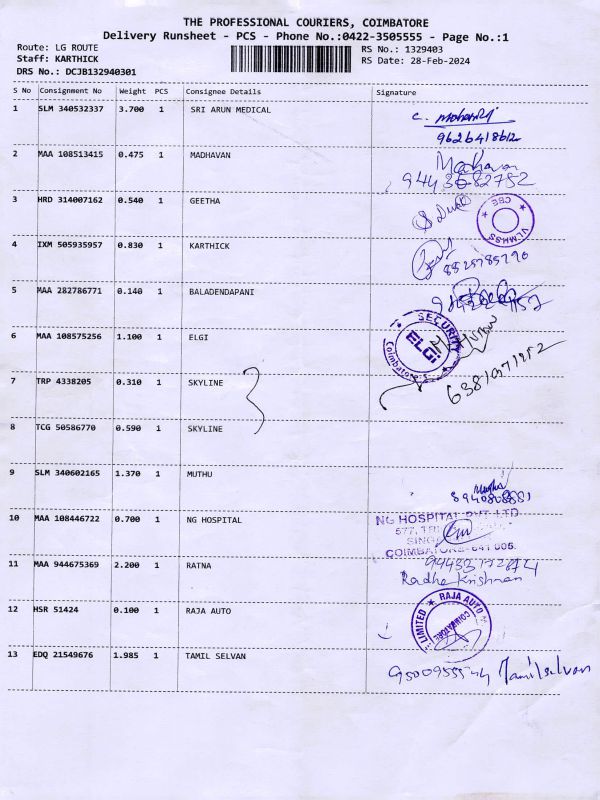 THE PROFESSIONAL COURIERS, COIMBATORE
Delivery Runsheet - PCS - Phone No.:0422-3505555 - Page No.:1
Route: LG ROUTE
RS No.: 1329403
Staff: KARTHICK
RS Date: 28-Feb-2024
DRS No.: DCJB132940301
S No Consignment No Weight PCS Consignee Details Signature
1 SLM 340532337 3.700 1 SRI ARUN MEDICAL
9626418612
2 MAA 108513415 0.475 1 MADHAVAN
Madhavan
9443682752
3 HRD 314007162 0.540 1 GEETHA
VLMHSS CBE
4 IXM 505935957 0.830 1 KARTHICK
8825785290
5 MAA 282786771 0.140 1 BALADENDAPANI
6 MAA 108575256 1.100 1 ELGI
SECURITY ELGI Coimbatore-5
7 TRP 4338205 0.310 1 SKYLINE
8 TCG 50586770 0.590 1 SKYLINE
9 SLM 340602165 1.370 1 MUTHU
Muthu
10 MAA 108446722 0.700 1 NG HOSPITAL
NG HOSPITAL PVT LTD
COIMBATORE-641 005.
11 MAA 944675369 2.200 1 RATNA
Radha Krishnan
12 HSR 51424 0.100 1 RAJA AUTO
RAJA AUTO LIMITED COIMBATORE
13 EDQ 21549676 1.985 1 TAMIL SELVAN
Tamilselvan